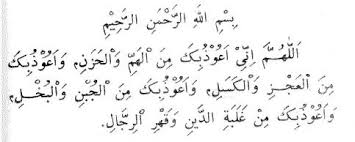 بِسْمِ اللهِ الرَّحْمٰنِ الرَّحِيْمِ
اَللّٰهُمَّ اِنِّيْ اَعُوْذُبِكَ مِنَ الْهَمِّ وَالْحَزَنِ، وَاَعُوْذُبِكَ
مِنَ الْعَجْزِ وَالْكَسَلِ، وَاَعُوْذُبِكَ مِنَ الْجُبْنِ وَالْبُخْلِ،
وَاَعُوْذُبِكَ مِنْ غَلَبَةِ الدَّيْنِ وَقَهْرِ الرِّجَالِ.